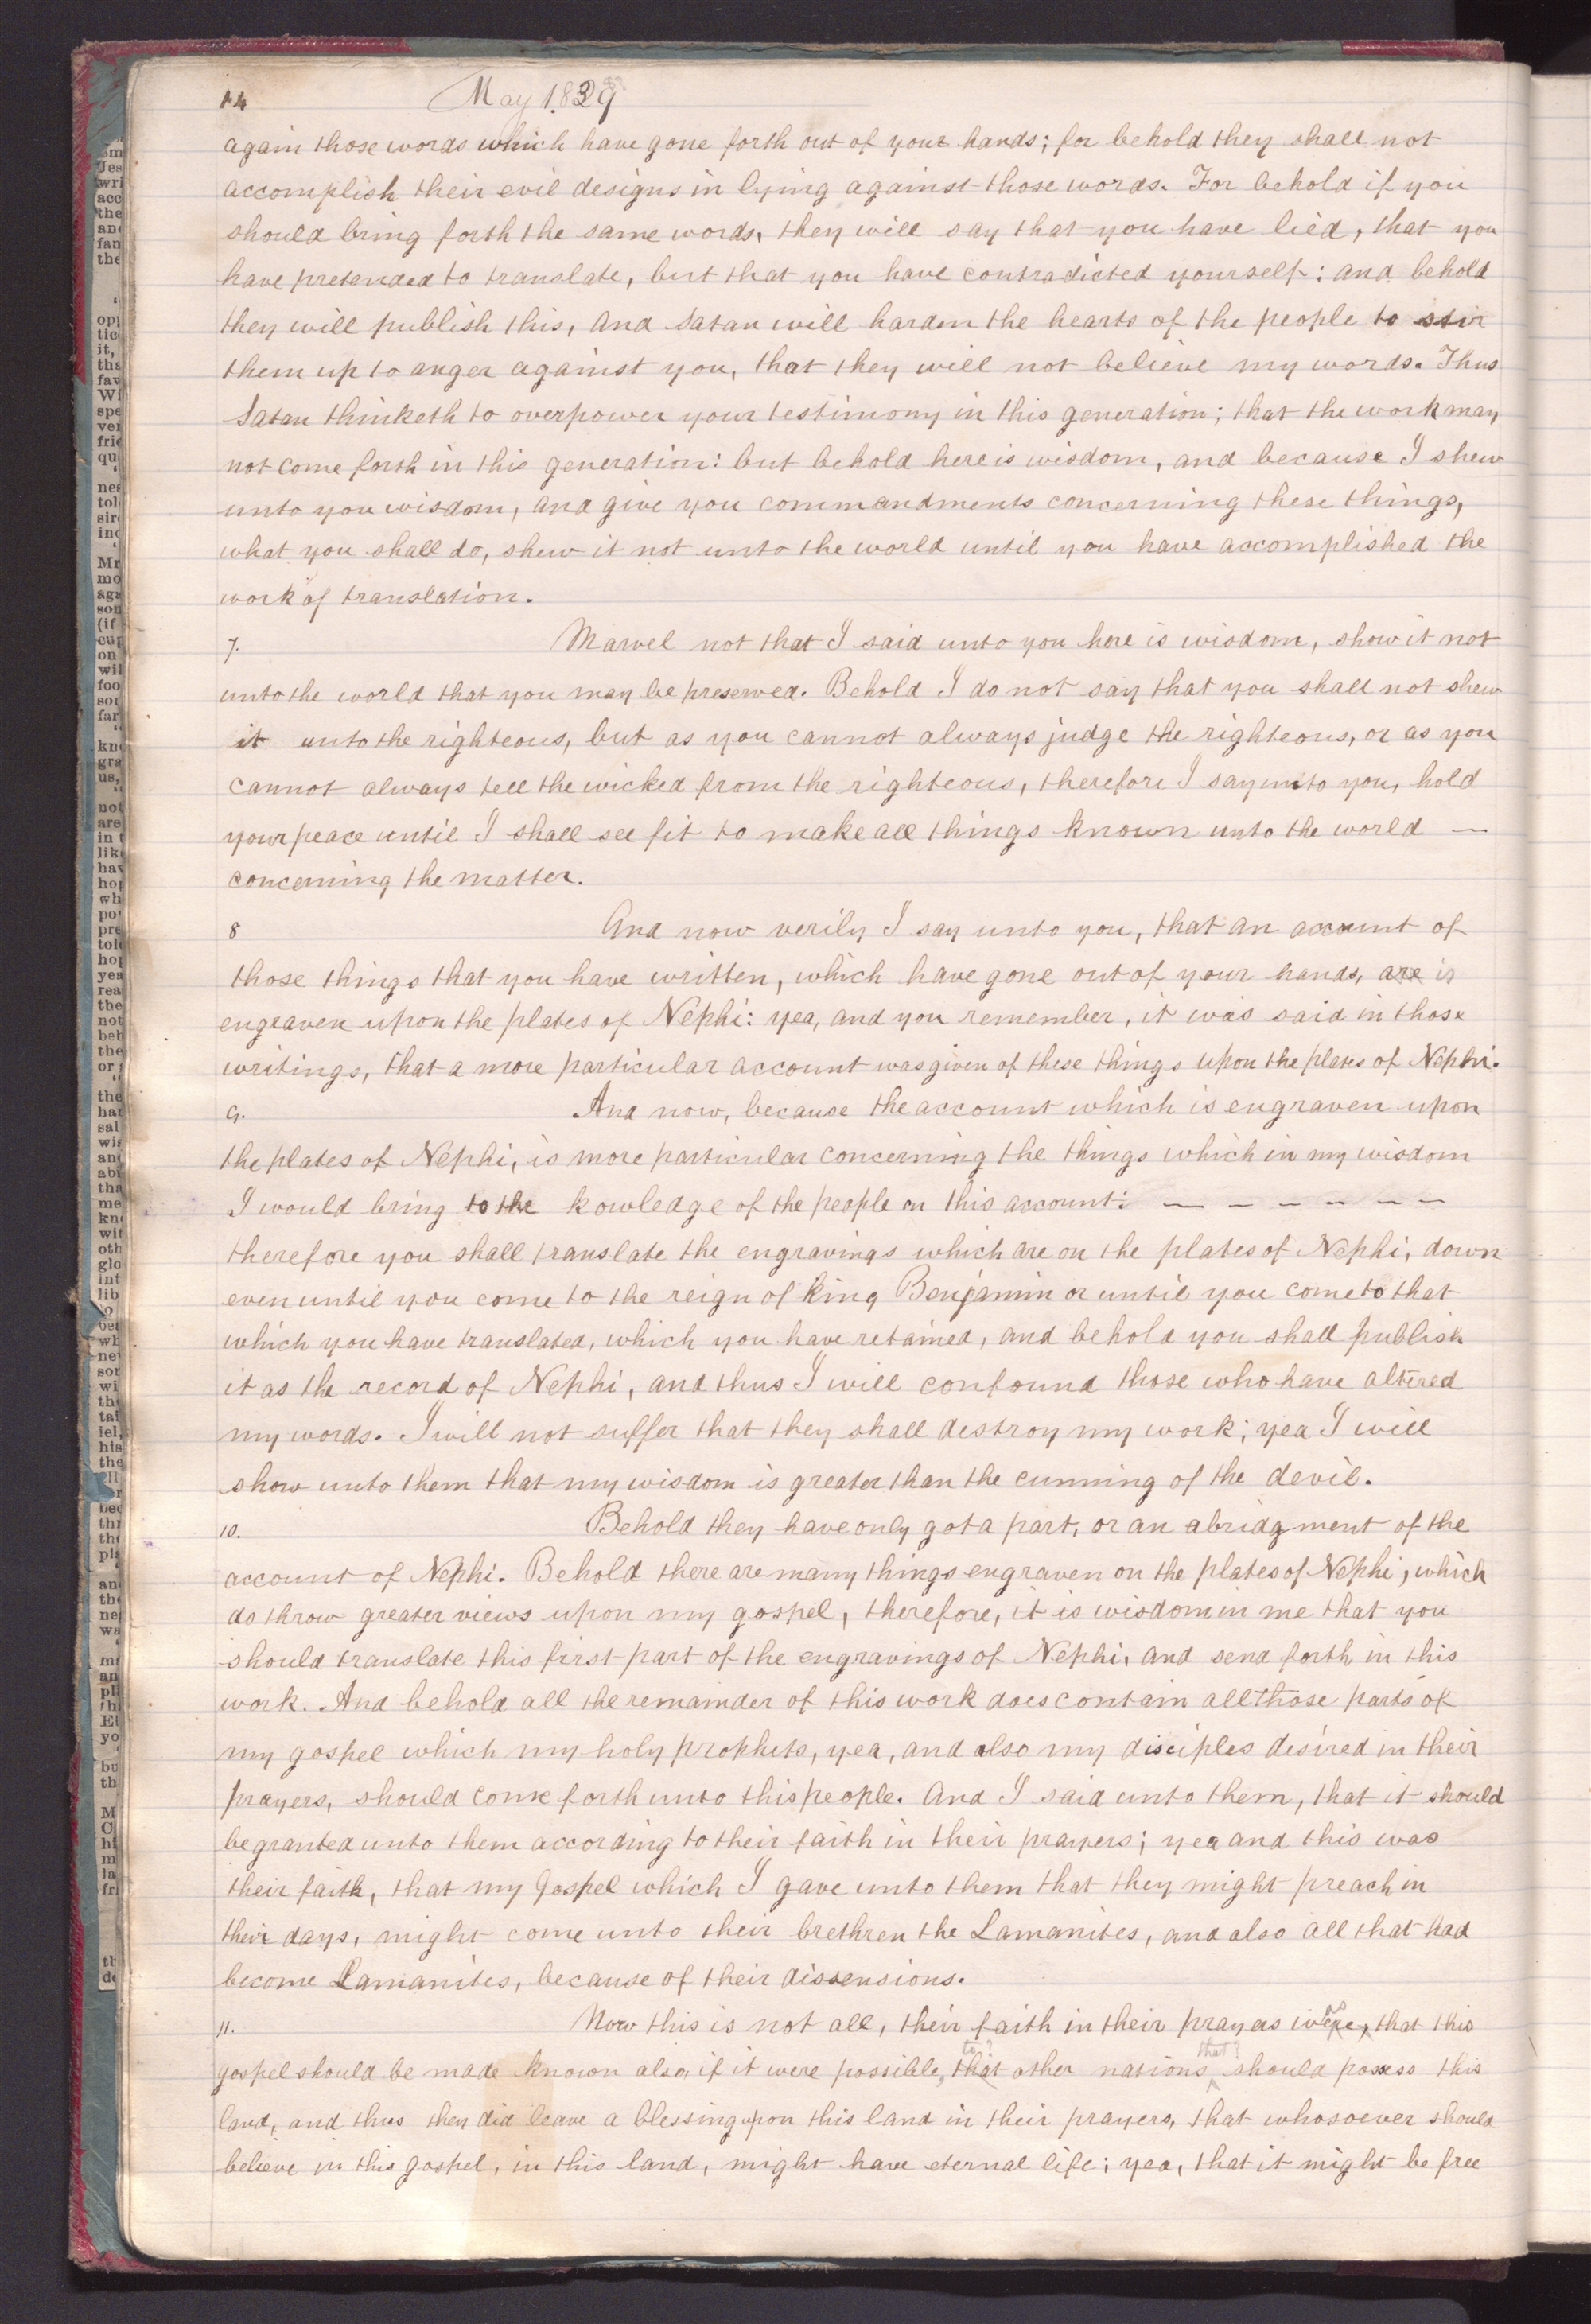 14 May 1829
again those words which have gone forth out of your hands; for behold they shall not
accomplish their evil designs in lying against those words. For behold if you
should bring forth the same words, they will say that you have lied, that you
have pretended to translate, but that you have contradicted yourself: and behold
they will publish this, and Satan will harden the hearts of the people to stir
them up to anger against you, that they will not believe my words. Thus
Satan thinketh to overpower your testimony in this generation; that the work may
not come forth in this generation: but behold here is wisdom, and because I shew
unto you wisdom, and give you commandments concerning these things,
what you shall do, shew it not unto the world until you have accomplished the
work of translation.
7. Marvel not that I said unto you here is wisdom, show it not
unto the world that you may be preserved. Behold I do not say that you shall not shew
it unto the righteous, but as you cannot always judge the righteous, or as you
cannot always tell the wicked from the righteous, therefore I say unto you, hold
your peace until I shall see fit to make all things known unto the world —
concerning the matter.
8 And now verily I say unto you, that an account of
those things that you have written, which have gone out of your hands, are is
engraven upon the plates of Nephi: yea, and you remember, it was said in those
writings, that a more particular account was given of these things upon the plates of Nephi.
9. And now, because the account which is engraven upon
the plates of Nephi, is more particular concerning the things which in my wisdom
I would bring to the kowledge of the people on this account: — — — — — — —
therefore you shall translate the engravings which are on the plates of Nephi, down
even until you come to the reign of king Benjamin or until you come to that
which you have translated, which you have retained, and behold you shall publish
it as the record of Nephi, and thus I will confound those who have altered
my words. I will not suffer that they shall destroy my work; yea I will
show unto them that my wisdom is greater than the cunning of the devil.
10. Behold they have only got a part, or an abridgment of the
account of Nephi. Behold there are many things engraven on the plates of Nephi, which
do throw greater views upon my gospel, therefore, it is wisdom in me that you
should translate this first part of the engravings of Nephi, and send forth in this
work. And behold all the remainder of this work does contain all those parts of
my gospel which my holy prophets, yea, and also my disciples desired in their
prayers, should come forth unto this people. And I said unto them, that it should
be granted unto them according to their faith in their prayers; yea and this was
their faith, that my Gospel which I gave unto them that they might preach in
their days, might come unto their brethren the Lamanites, and also all that had
become Lamanites, because of their dissensions.
11. Now this is not all, their faith in their prayers were, as that this
gospel should be made known also, if it were possible, to? that other nations that? should possess this
land, and thus they did leave a blessing upon this land in their prayers, that whosoever should
believe in this gospel, in this land, might have eternal life; yea, that it might be free